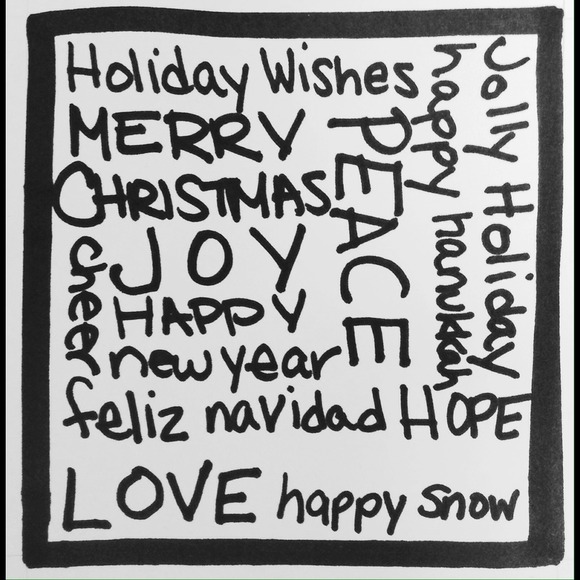 Holiday Wishes
MERRY
CHRISTMAS
JOY
cheer
HAPPY
new year
feliz navidad HOPE
LOVE happy snow
PEACE
happy hanukkah
Jolly Holiday